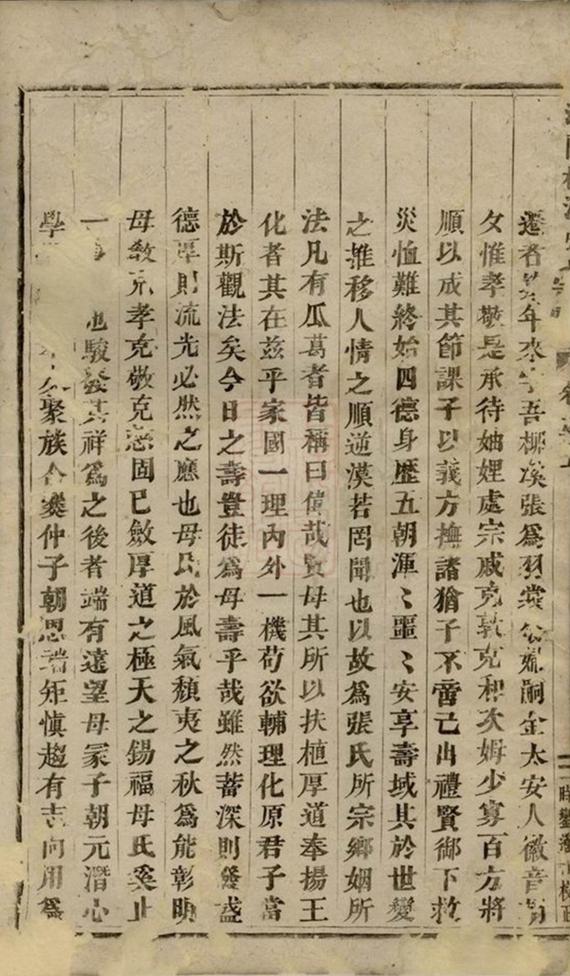 年來吾柳溪張爲羽裳公嗣金太安人徽音
夂惟孝敬是承待妯娌處宗戚克敦克和次姆少寡百方將
順以成其節課子以義方撫諸猶子不啻己出禮賢御下救
災恤難終始四德身歷五朝渾〻噩〻安享壽域其於世變
之推移人情之順逆漠若罔聞也以故爲張氏所宗鄉姻所
法凡有瓜葛者皆稱曰偉哉賢母其所以扶植厚道奉揚王
化者其在兹乎家國一理內外一機苟欲輔理化原君子當
於斯觀法矣今日之壽豈徒爲母壽乎哉雖然蓄深則發盛
德厚則流光必然之應也母氏於風氣頹夷之秋爲能彰明
母教克孝克敬克慈固已斂厚道之極天之錫福母氏奚止
一 也駿發其祥爲之後者端有遠望母冢子朝元潛心
學 聚族合爨仲子朝恩端矩慎趨有志向用爲